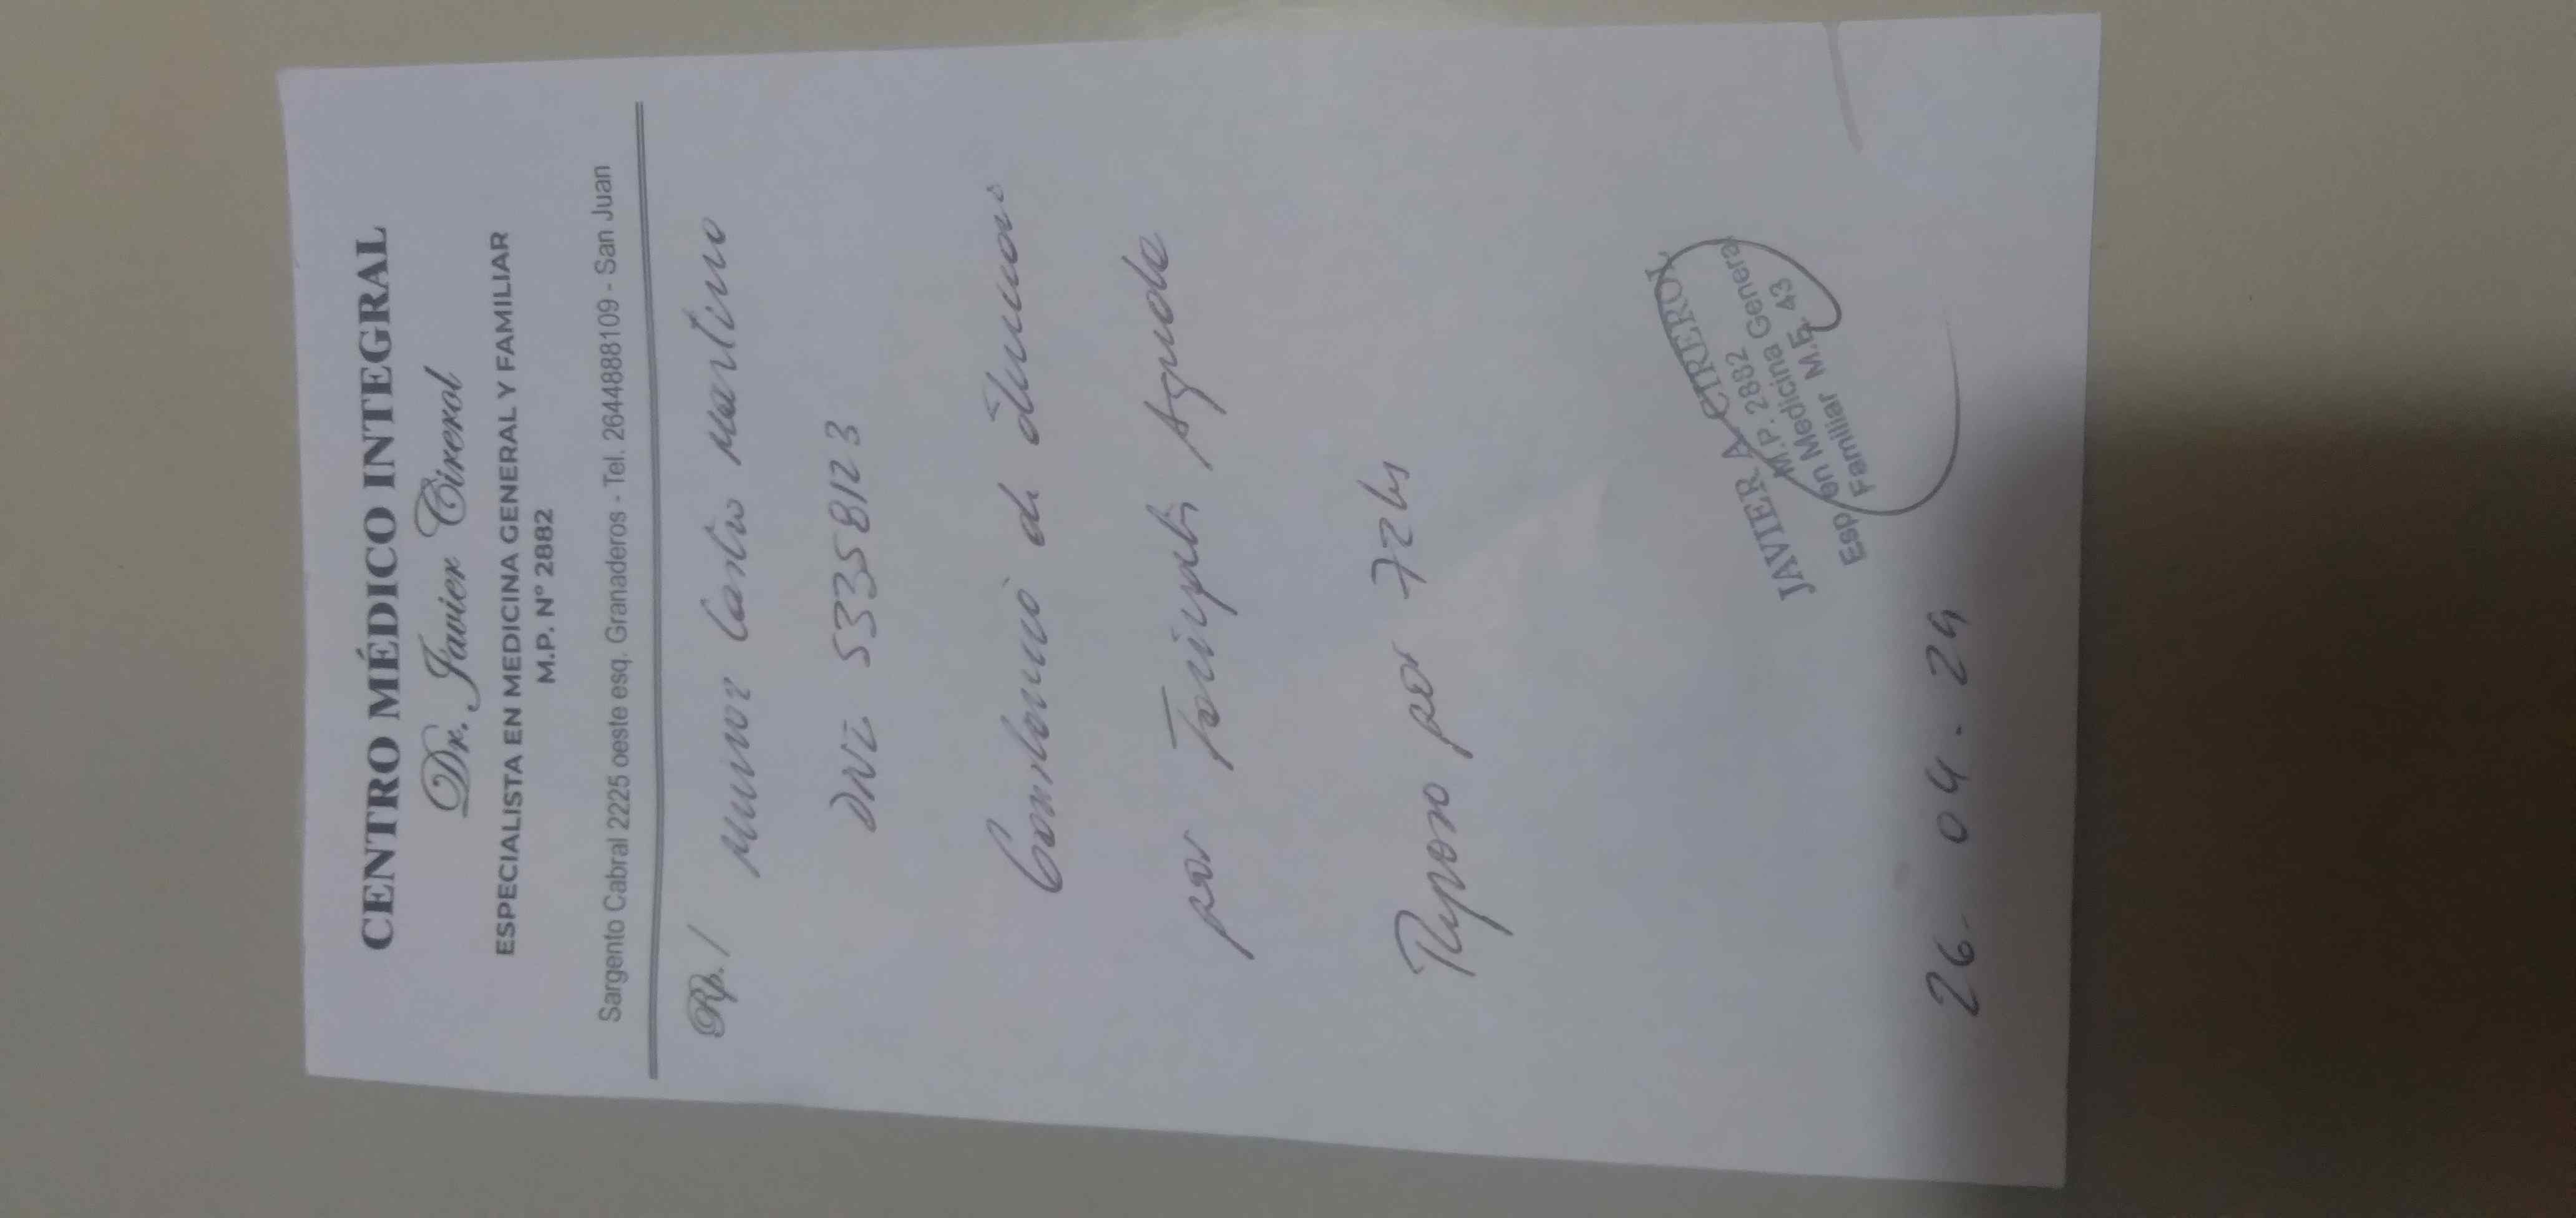 CENTRO MÉDICO INTEGRAL
Dr. Javier Cirerol
ESPECIALISTA EN MEDICINA GENERAL Y FAMILIAR
M.P. N° 2882
Sargento Cabral 2225 oeste esq. Granaderos - Tel. 2644888109 - San Juan
Rp./ Munoz Castro Martino
DNI 53358123
Constancia de
por Faringitis Aguda
Reposo por 72 hs
JAVIER A. CIREROL
M.P. 2882
Esp. en Medicina General
Familiar M.E. 43
26. 04. 24